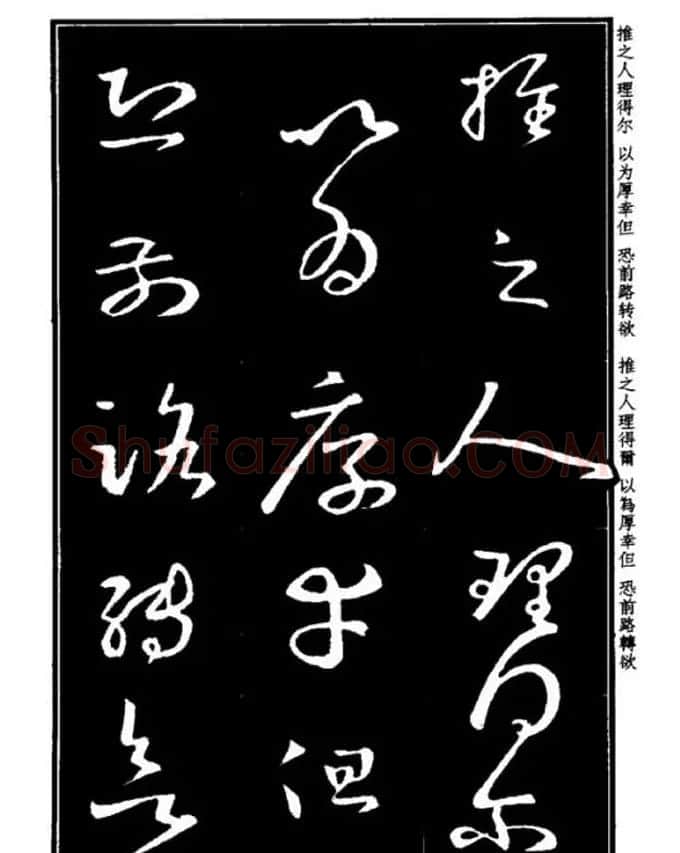 推之人理得尔 以为厚幸但 恐前路转欲
推之人理得爾 以為厚幸但 恐前路轉欲
推之人理得尔
以為厚幸但
恐前路轉欲
Shufaziliao.COM